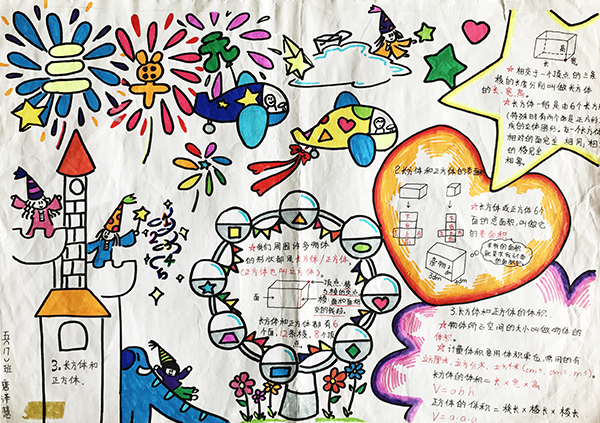 三单元
3.长方体和
正方体.
五(7)班
☆我们周围许多物体
的形状都是长方体/正方体
(正方体也叫立方体).
面
顶点
棱
长方体和正方体都有6
个面,12条棱,8个顶
点.
长
宽
高
☆相交于一个顶点的三条
棱的长度分别叫做长方体
的长、宽、高.
☆长方体一般是由6个长方形
(特殊时有两个面是正方形)
成的立体图形.
相对的面完全相同,相
的棱完全
相等.
2.长方体和正方体的表面积
☆长方体或正方体6个
面的总面积,叫做它
的表面积
3.长方体和正方体的体积.
☆物体所占空间的大小叫做物体的
体积.
☆计量体积要用体积单位,常用的有
立方厘米、立方分米、立方米(cm³、dm³、m³).
长方体的体积=长×宽×高
V=abh
正方体的体积=棱长×棱长×棱长
V=a·a·a